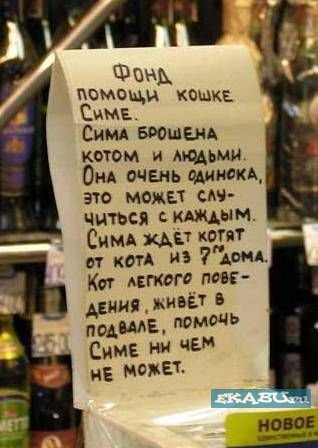 Фонд
помощи кошке
Симе.
Сима брошена
котом и людьми.
Она очень одинока,
это может слу-
читься с каждым.
Сима ждёт котят
от кота из 7го дома.
Кот легкого пове-
дения, живёт в
подвале, помочь
Симе ни чем
не может.
EKABU.ru
НОВОЕ